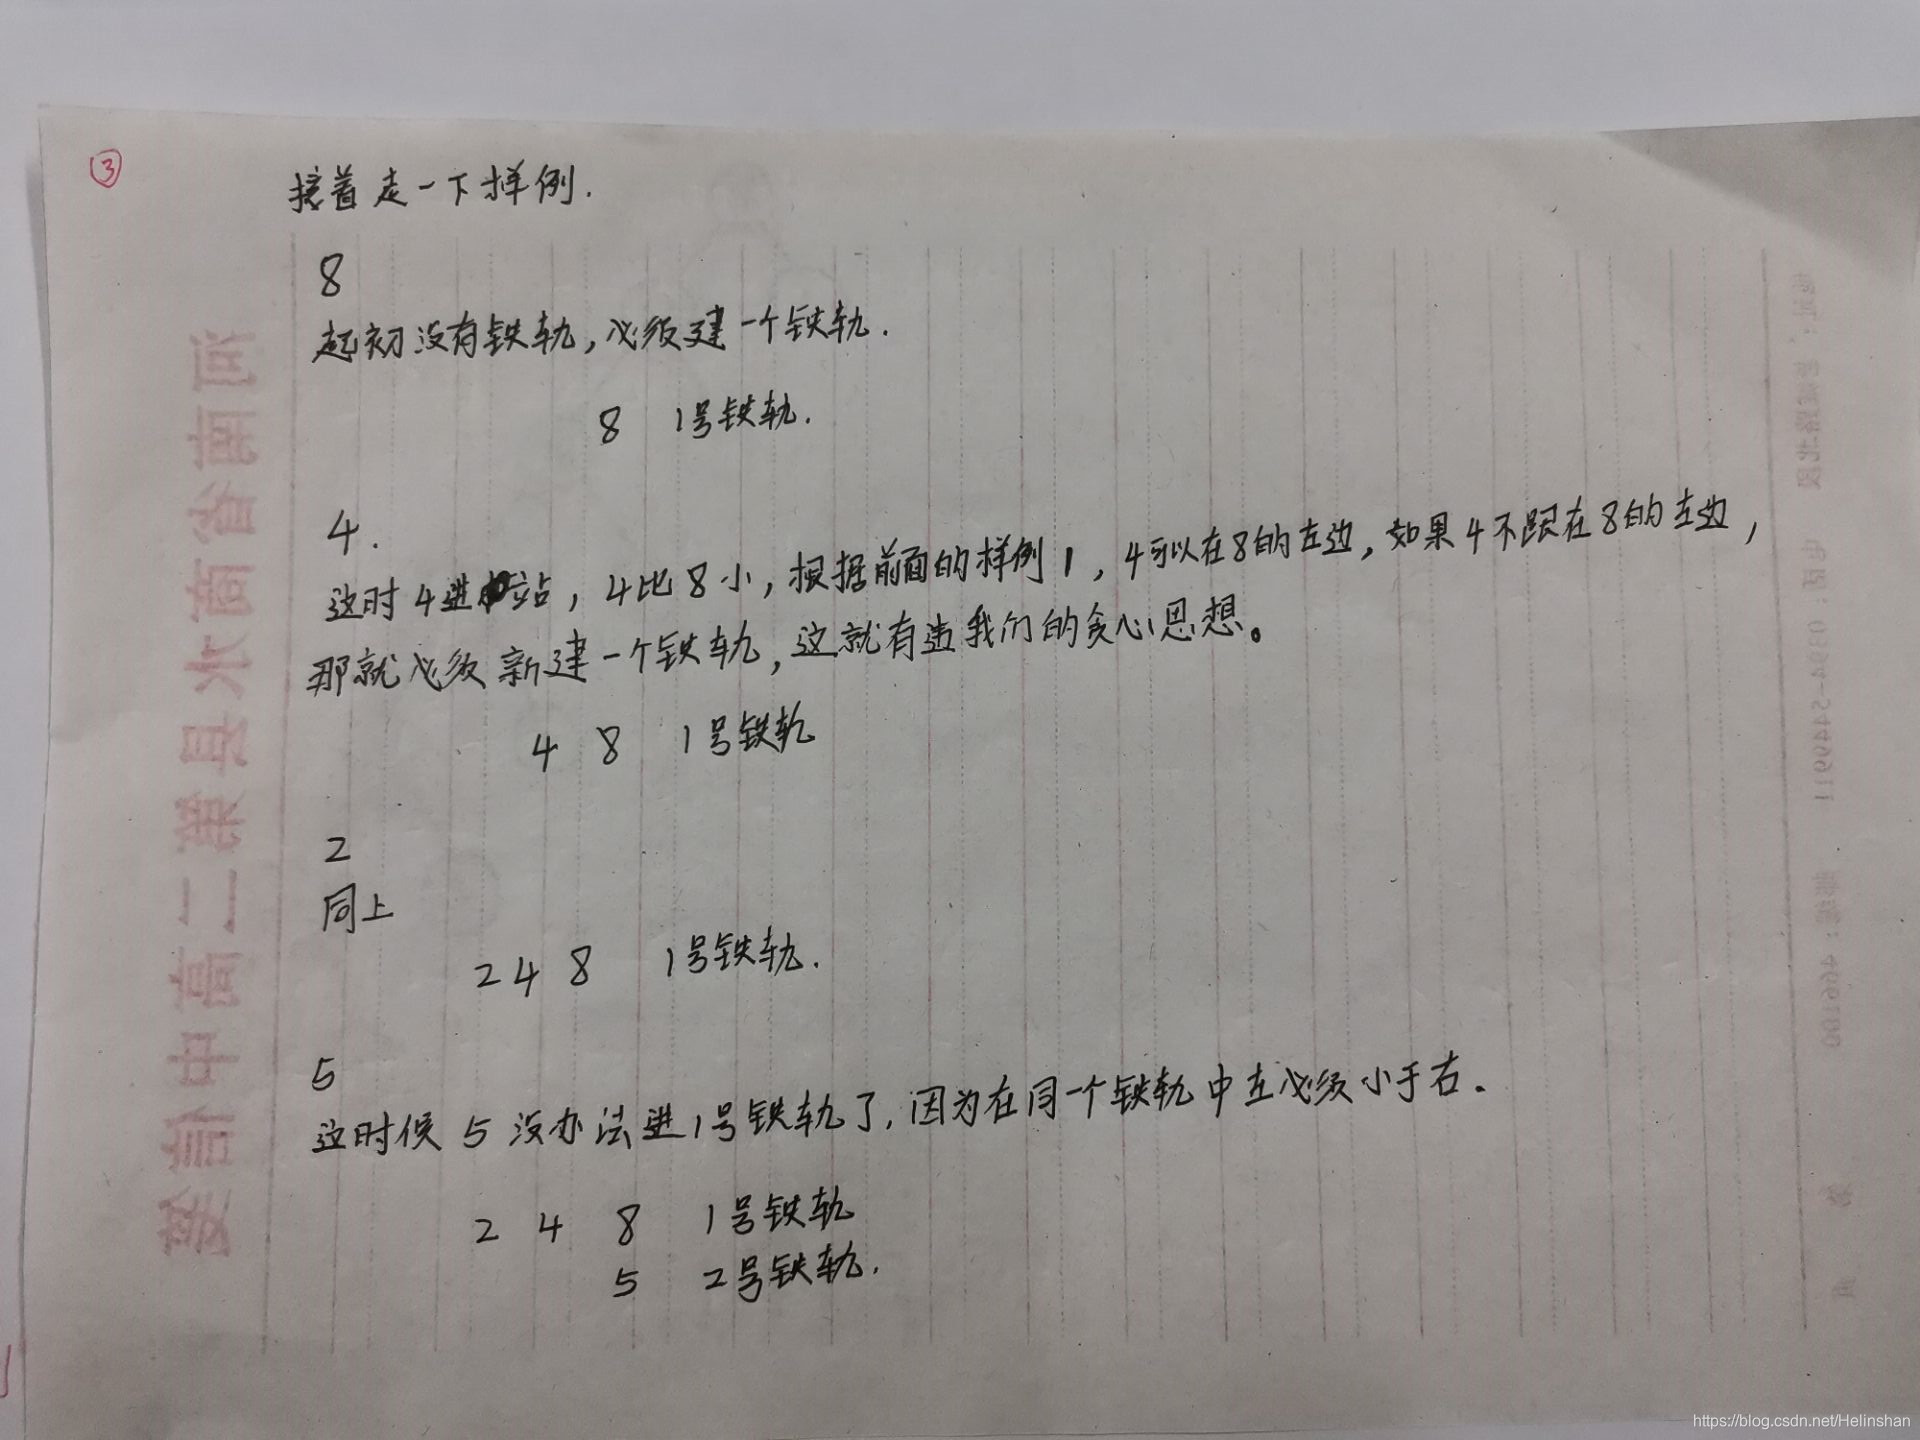 ③
接着走一下样例.
8
起初没有铁轨,必须建一个铁轨.
8 1号铁轨.
4.
这时4进站,4比8小,根据前面的样例1,4可以在8的左边,如果4不跟在8的左边,
那就必须新建一个铁轨,这就有违我们的贪心思想。
4 8 1号铁轨
2
同上
2 4 8 1号铁轨.
5
这时候5没办法进1号铁轨了,因为在同一个铁轨中左必须小于右.
2 4 8 1号铁轨
5 2号铁轨.
https://blog.csdn.net/Helinshan